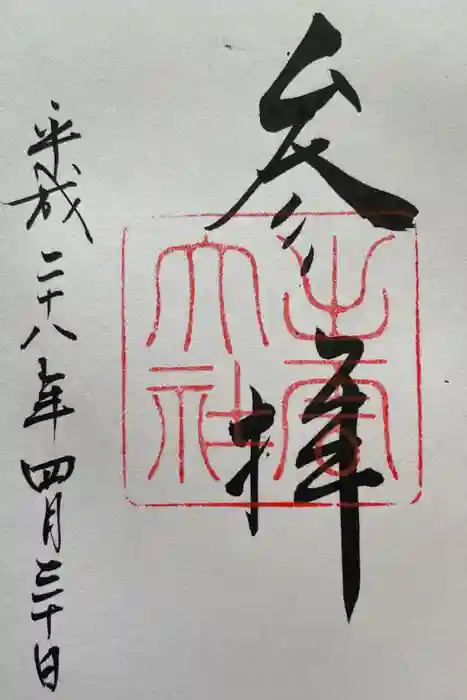 参拝
出雲
大社
平成二十八年四月三十日